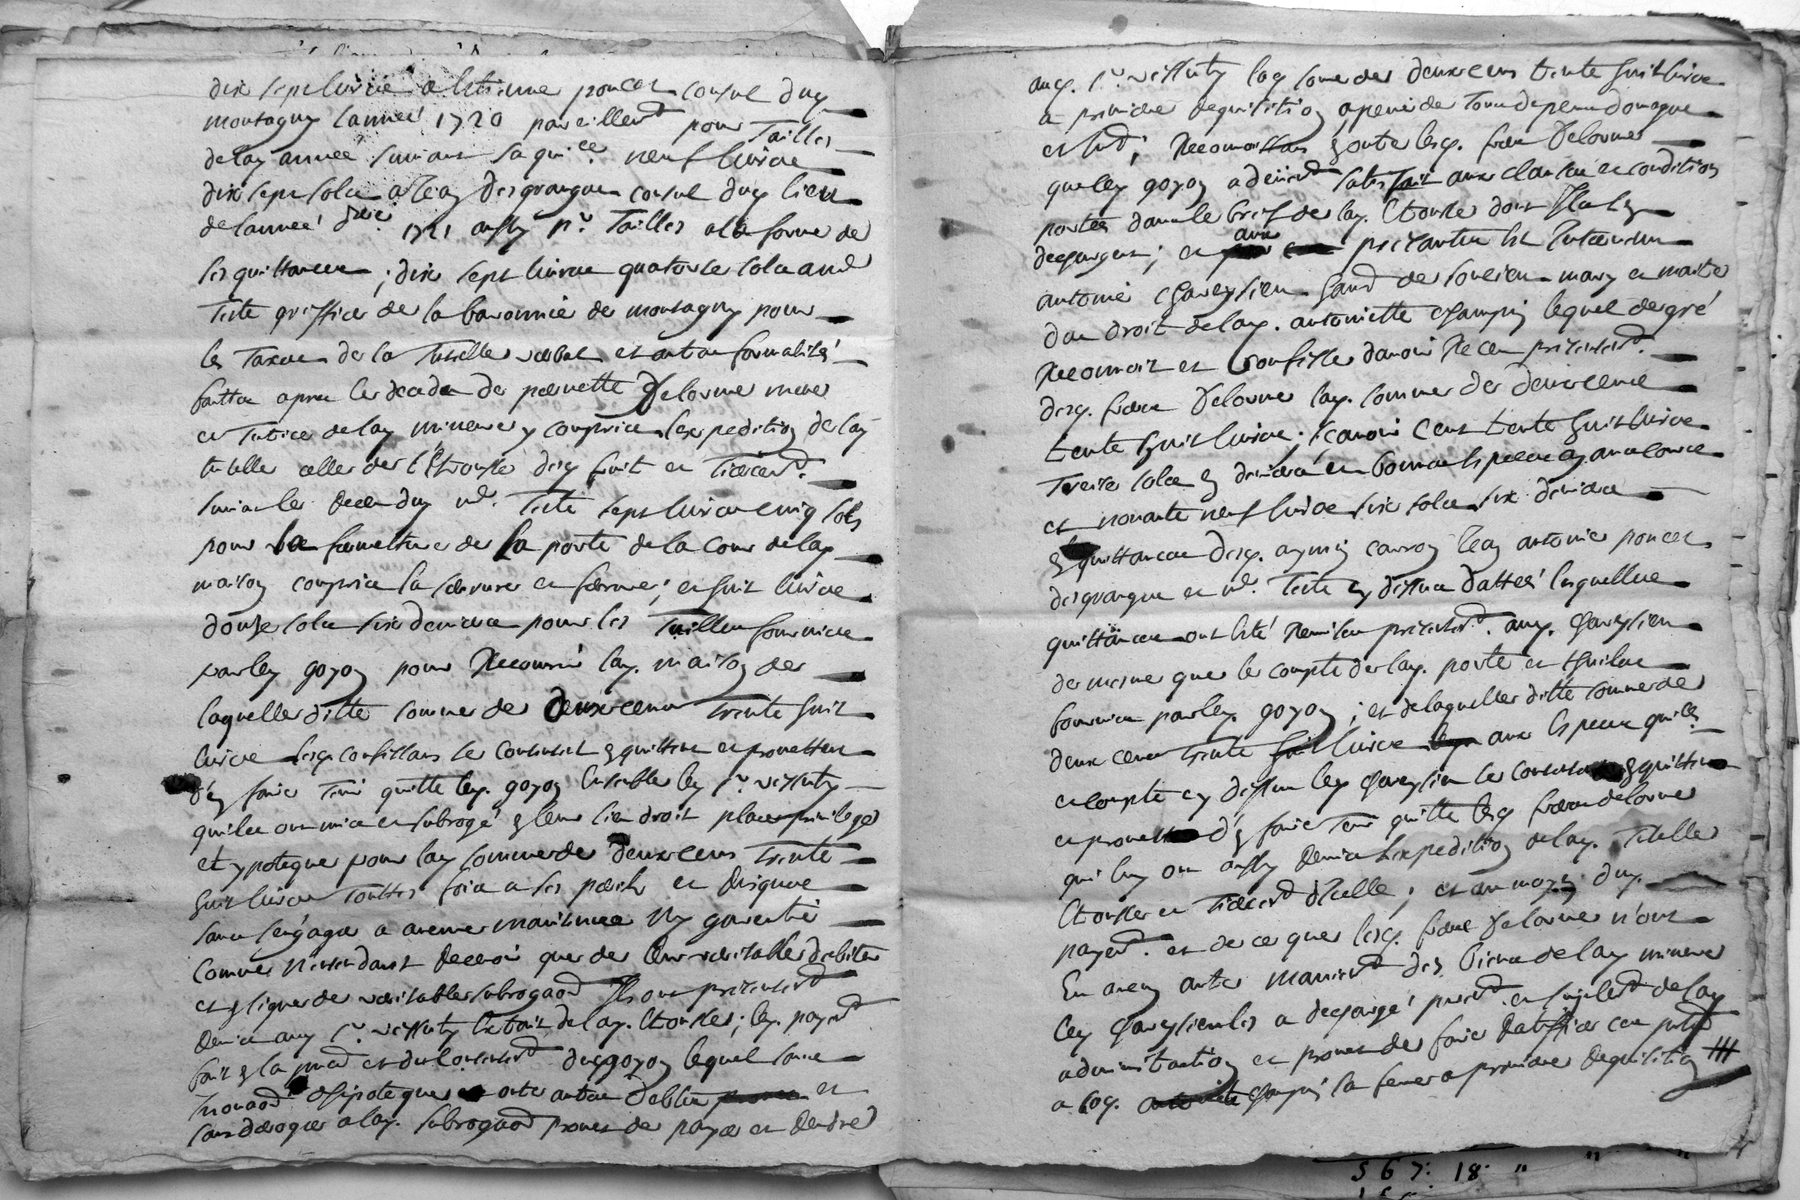 dix sept livres a Estienne poncet consul dud.
montagny lannée 1720 pareillemt pour Tailles
de lad année suivant sa quice. neuf livres
dix sept sols a Jean Desgranges consul dud lieu
de lannée 1721 aussy pr. Tailles a la forme de
ses quittances ; dix sept livres quatorze sols a md
Teste greffier de la baronnie de montagny pour
les Taxes de la Tutelle verbal et autres formalités
faittes apres le deceds de pernette Delorme mere
et Tutrice de lad mineure y compris lexpedition de lad
tutelle celle de lEtrousse desd fruit et
suivant le Receu dud md. Teste sept livres cinq sols
pour la fermeture de la porte de la cour de lad
maison compris la serrure et ferrure ; et huit livres
douze sols six deniers pour les Tuilles fournies
par led goyon pour Recouvrir lad. maison de
laquelle ditte somme de deux cents trente huit
livres lesd confessans se contentent & quittent et promettent
d'en faire Tenir quitte led. goyon Ensemble led Sr.
quils ont mis et subrogé en leur lieu droit place privilege
et ypoteque pour lad somme de deux cens trente
huit livres Touttes fois a ses perils et Risques
sans sengager a aucune maintenue Ny garentie
Comme Nentendant Recevoir que de leur veritable debiteur
et en ligne de veritable subrogaon Ils ont presentemt
Remis aud Sr. lextrait de lad. Etrousse ; led. payemt
fait en la pnce et du consentemt dud goyon lequel sans
Innovaon dhipoteque et autre debtes et
sans deroger a lad. subrogaon promet de payer et Rendre
aud. Sr. lad somme de deux cens trente huit livres
a premiere Requisition a peine de Tous depens domages
et Int. ; Reconnoissans en outre lesd. freres Delorme
que led goyon a deüemt satisfait aux clauses et conditions
portées dans le bref de lad. Etrousse dont Ils len
dechargent ; et aux presantes Est Intervenu
antoine Chareysieu hand de soucieu mary et maitre
des droit de lad. antoinette champin lequel de gré
Reconnoit et Confesse davoir Receu presentemt.
desd. freres Delorme lad. somme de deux cents
trente huit livres ; sçavoir Cent trente huit livres
Treize sols en deniers en bonnes Especes ayant cours
et nonante neuf livres six sols six deniers
en quittances desd. aymé carron Jean antoine poncet
desgranges et md. Teste cy dessus dattées lesquelles
quittances ont Eté Remises presentemt. aud. Chareysieu
de mesme que le compte de lad. porte et thuiles
fournies par led. goyon ; et de laquelle ditte somme de
deux cents trente huit livres aux Especes quices.
et compte cy dessus led Chareysieu se contente & quitte
et promet d'en faire Tenir quitte lesd freres delorme
qui luy ont aussy Remis lexpedition de lad. Tutelle
Etrousse et d'Icelle ; et au moyen dud.
payemt. et de ce que lesd. freres Delorme n'ont
Eu aucun autre maniemt des biens de lad mineure
led Chareysieu les a dechargé puremt et simplemt de lad
administration et promet de faire Ratiffier ces pntes
a lad. champin sa femme a premiere Requisition
567: 18 "